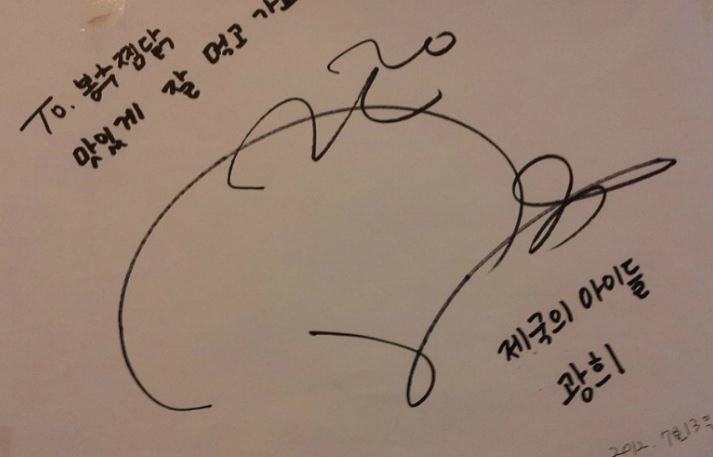 To. 봉수찜닭
맛있게 잘 먹고 가요
제국의 아이들
광희
2012. 7월13일